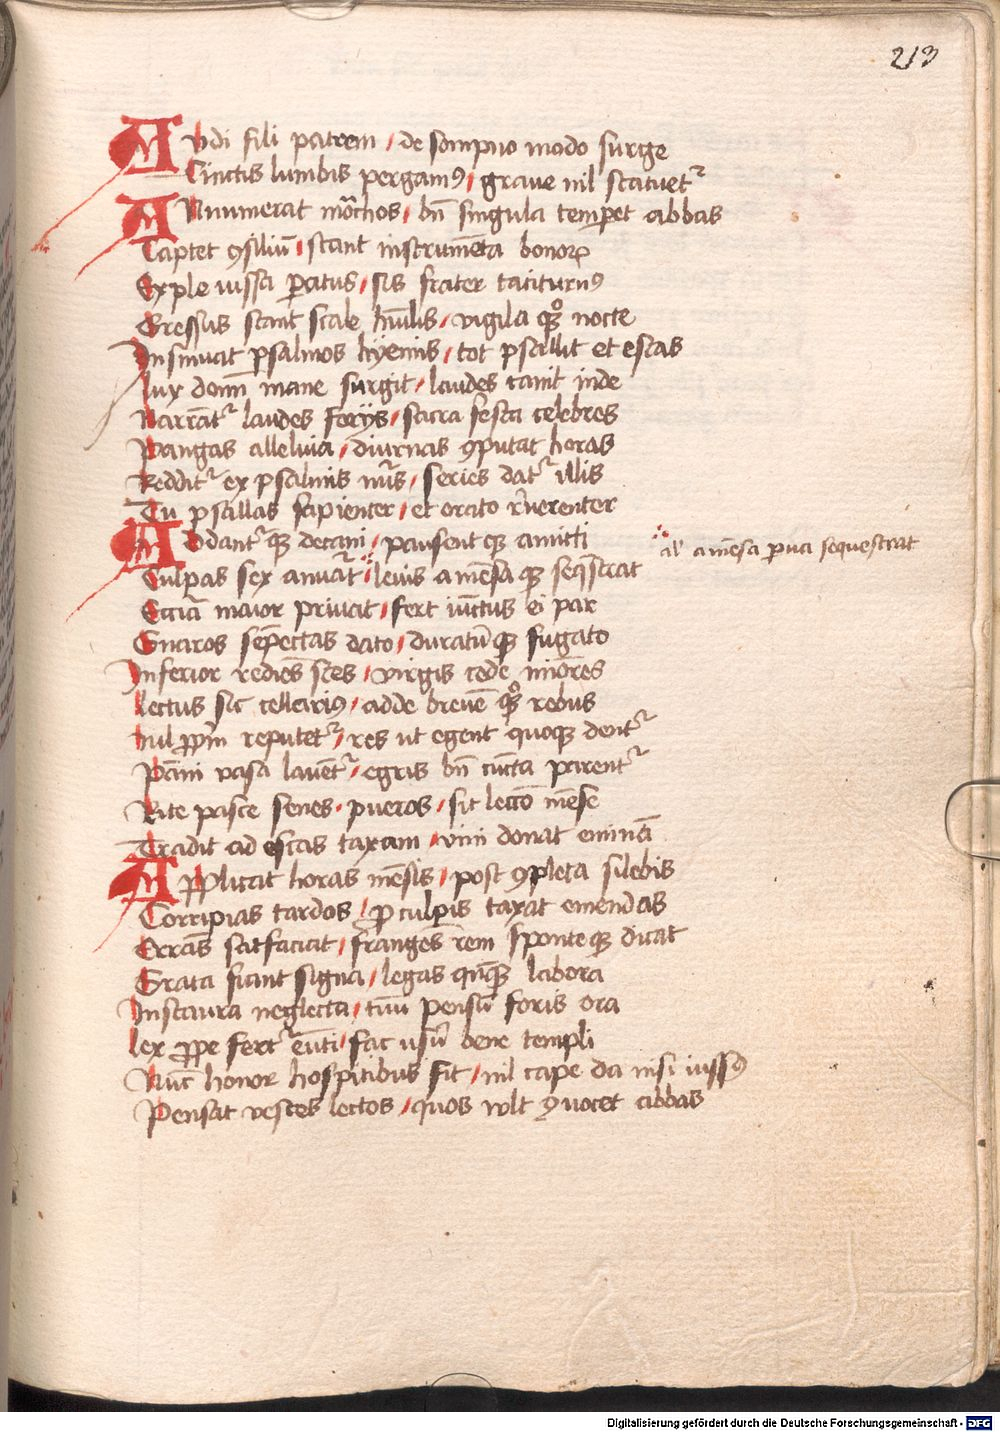 213
Audi fili patrem / de sompno modo surge
Cinctis lumbis pergamꝰ / graue nil statuetᷣ
Annumerat mōchos / bn̄ singula temꝑet abbas
Captet ꝯsiliū / stant instrumēta bonoꝝ
Exple iussa ꝑatus / sis frater taciturnꝰ
Gressus stant scale hūilis / vigila qͦꝫ nocte
Insinuat psalmos hyemis / tot psallit et estas
Lux domī mane surgit / laudes canit inde
Narrātᷣ laudes feriis / sacra festa celebres
Pangas alleluia / diurnas ꝯputat horas
Redditᷣ ex psalmis nūs / series datᷣ illis
Tu psallas sapienter / et orato reuerenter
Addantᷣ qꝫ decani / pausent qꝫ amicti
al' a mēsa ꝑua sequestrat
Culpas sex anuatᷣ / leuis a mēsa qꝫ seqstrat
Eciā maior priuat / fert iūctus ei par
Gnaros sēpectas dato / duratūqꝫ fugato
Inferior rediēs stes / virgis cede miōres
Lectus sit cellariꝰ / adde breuē qͦꝫ rebus
Nil ꝓprīm reputetᷣ / res ut egent quoqꝫ dentᷣ
Pāni vasa lauētᷣ / egris bn̄ cūcta parentᷣ
Rite pasce senes / pueros / sit lectō mēse
Tradit ad escas taxam / vini donat eminā
Applicat horas mēsis / post ꝯpleta silebis
Corripias tardos / ꝓ culpis taxat emendas
Errās satfaciat / frangēs rem sponteqꝫ dicat
Grata fiant signa / legas qn̄qꝫ labora
Instaura neglecta / tuū pensū foris ora
Lex ꝓpe fertᷣ eūti / fac usū bene templi
Nūc honor hospitibus fit / nil cape da nisi iussꝰ
Pensat vestes lectos / quos wlt ꝯuocet abbas
Digitalisierung gefördert durch die Deutsche Forschungsgemeinschaft - DFG